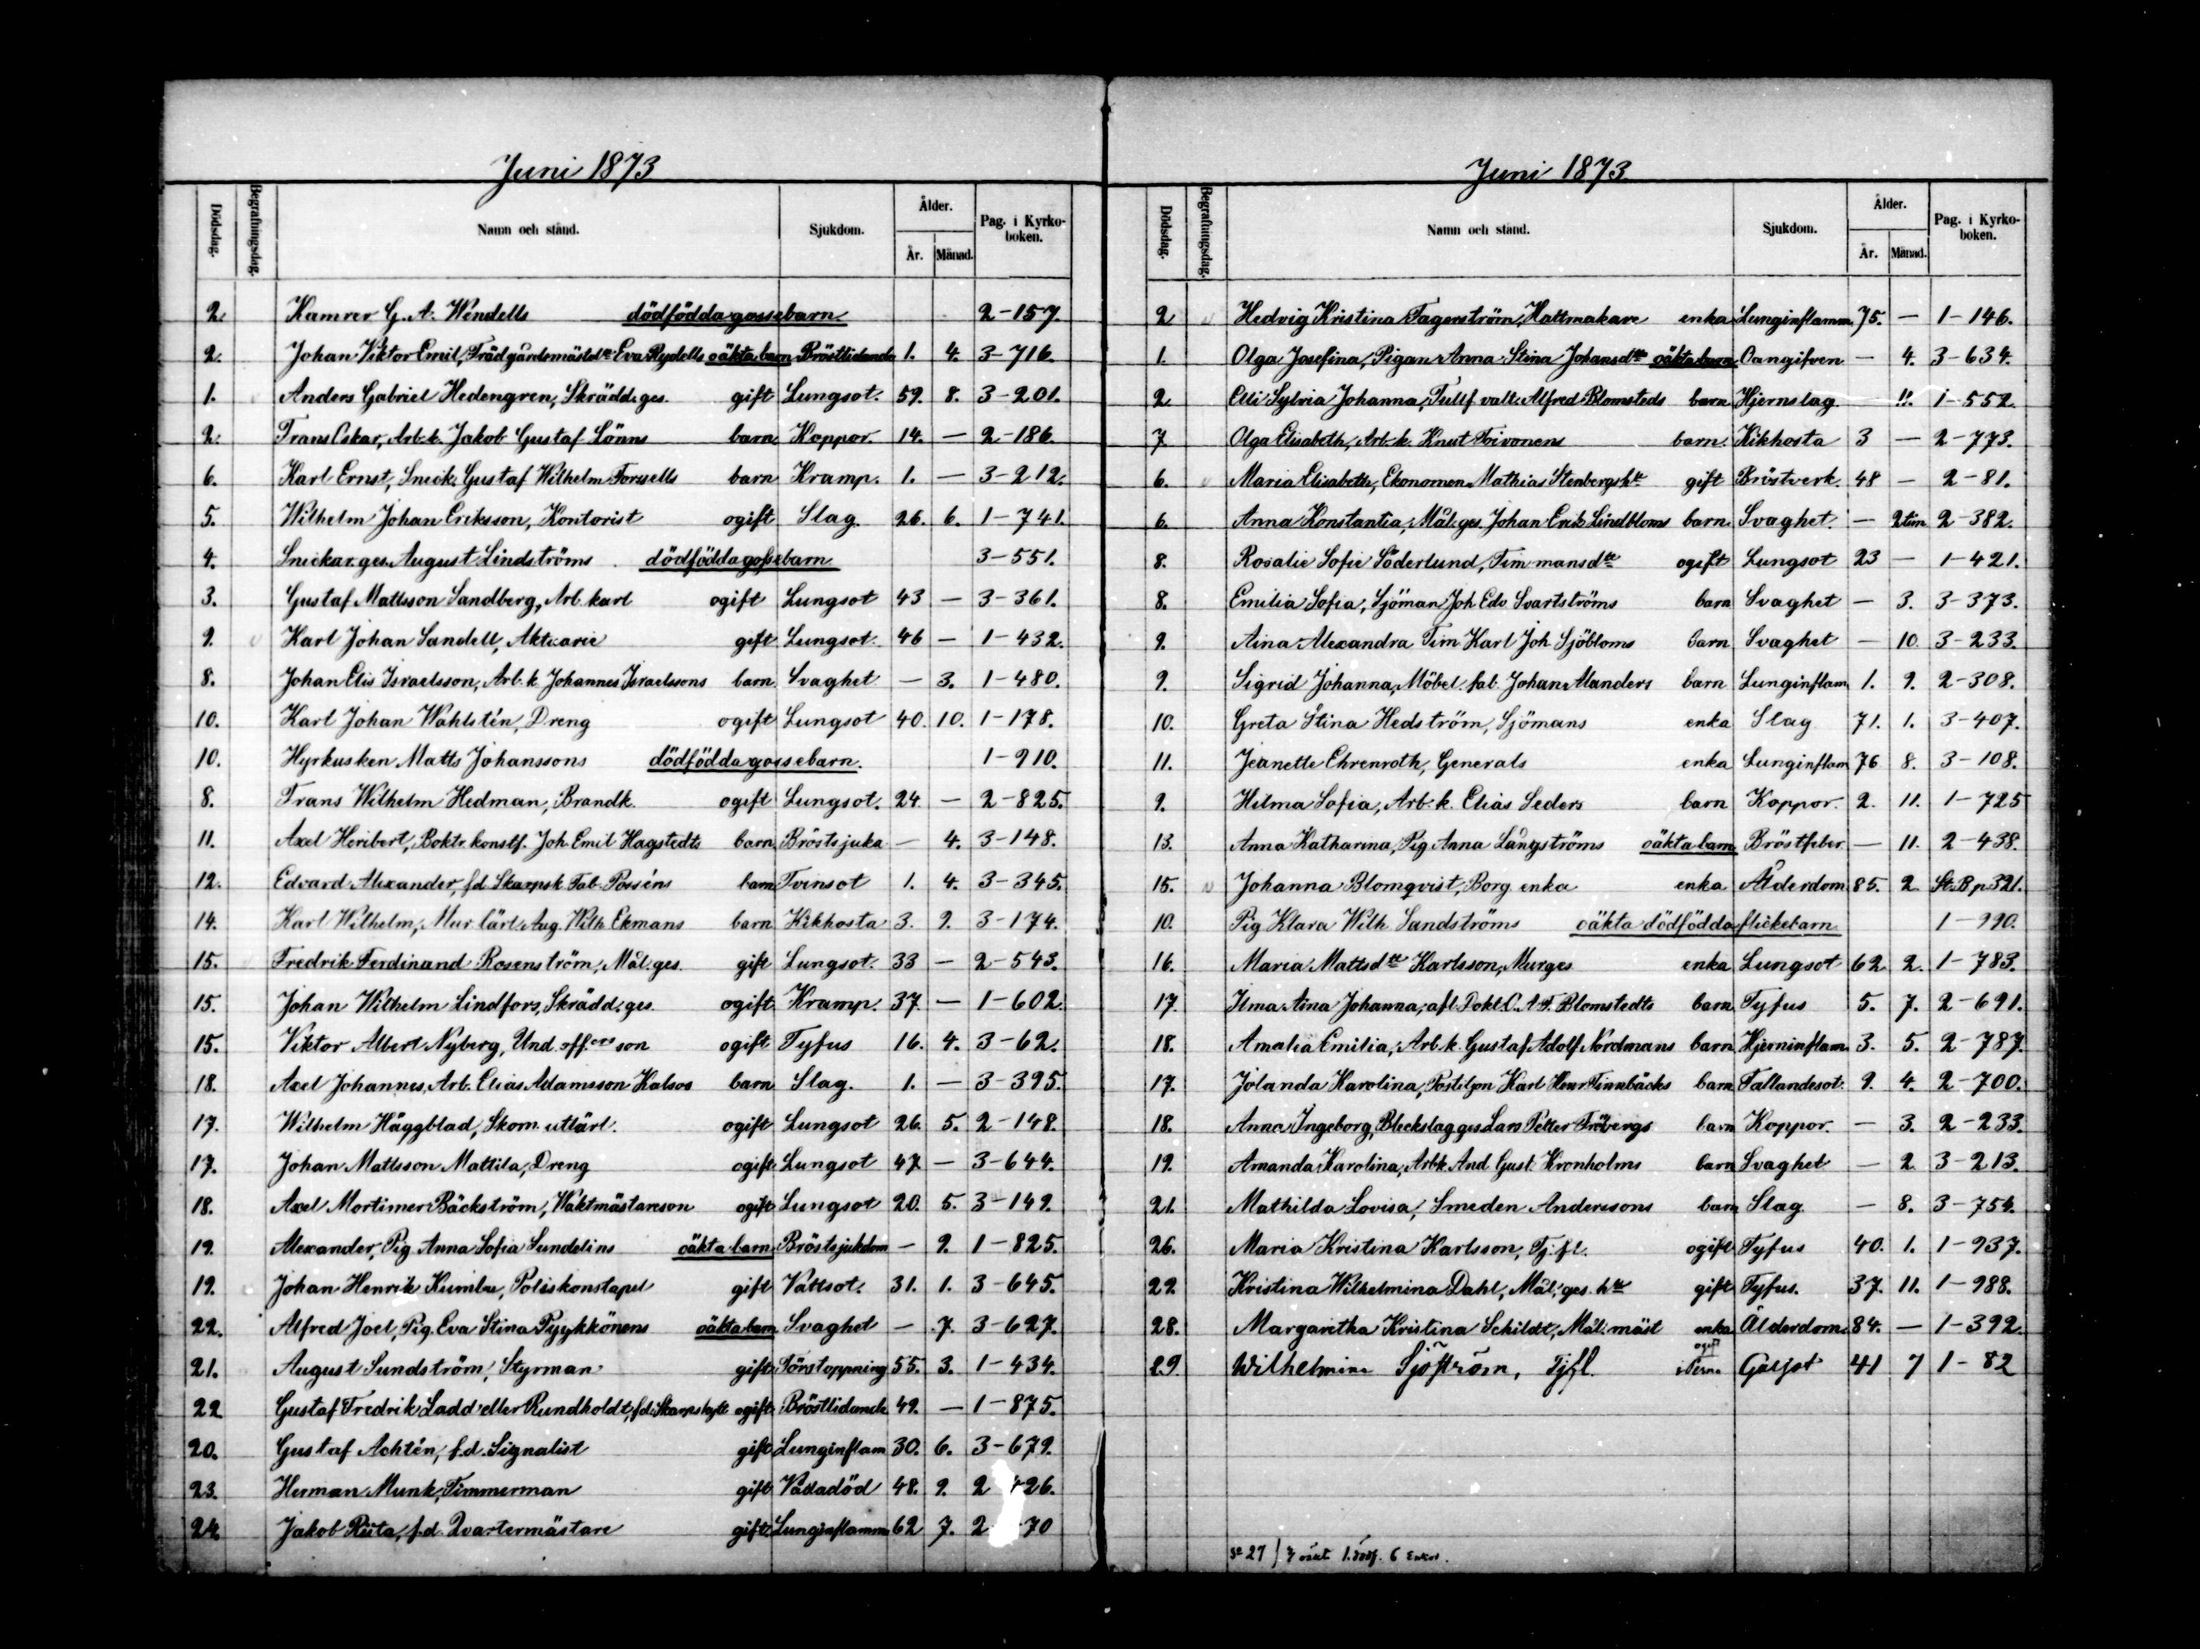 Juni 1873
Dödsdag. Begrafningsdag. Namn och stånd. Sjukdom. Ålder. År. Månad. Pag. i Kyrkoboken.
2. Kamrer G. A. Wendells dödfödda gossebarn 2-157.
2. Johan Viktor Emil, Trädgårdsmästdr Eva Rydells oäkta barn Bröstlidande 1. 4. 3-716.
1. Anders Gabriel Hedengren, Skrädd. ges. gift Lungsot. 59. 8. 3-201.
2. Frans Oskar, Arb. k. Jakob Gustaf Lönns barn Koppor. 14. — 2-186.
6. Karl Ernst, Snick. Gustaf Wilhelm Forssells barn Kramp. 1. — 3-212.
5. Wilhelm Johan Eriksson, Kontorist ogift Slag. 26. 6. 1-741.
4. Snickar. ges. August Lindströms dödfödda gossebarn 3-551.
3. Gustaf Mattsson Sandberg, Arb. karl ogift Lungsot 43 — 3-361.
9. Karl Johan Sandell, Aktuarie gift Lungsot. 46 — 1-432.
8. Johan Elis Israelsson, Arb. k. Johannes Israelssons barn. Svaghet — 3. 1-480.
10. Karl Johan Wahlstén, Dreng ogift Lungsot 40. 10. 1-178.
10. Hyrkusken Matts Johanssons dödfödda gossebarn. 1-910.
8. Frans Wilhelm Hedman, Brandk. ogift Lungsot. 24 — 2-825.
11. Axel Heribert, Boktr. konstf. Joh. Emil Hagstedts barn Bröstsjuka — 4. 3-148.
12. Edvard Alexander, f.d. Skarpsk. Fab. Posséns barn Tvinsot 1. 4. 3-345.
14. Karl Wilhelm, Mur. lärl. Aug. Wilh. Ekmans barn Kikhosta 3. 9. 3-174.
15. Fredrik Ferdinand Rosenström, Mål. ges. gift Lungsot. 33 — 2-543.
15. Johan Wilhelm Lindfors, Skrädd. ges. ogift Kramp. 37. — 1-602.
15. Viktor Albert Nyberg, Und. off.ers son ogift Tyfus 16. 4. 3-62.
18. Axel Johannes, Arb. Elias Adamsson Kalsos barn Slag. 1. — 3-395.
17. Wilhelm Häggblad, Skom. utlärl. ogift Lungsot 26. 5. 2-148.
17. Johan Mattsson Mattila, Dreng ogift Lungsot 47 — 3-644.
18. Axel Mortimer Bäckström, Waktmästareson ogift Lungsot 20. 5. 3-149.
19. Alexander, Pig. Anna Sofia Sundelins oäkta barn Bröstsjukdom — 9. 1-825.
19. Johan Henrik Kumlin, Poliskonstapel gift Vattsot. 31. 1. 3-645.
22. Alfred Joel, Pig. Eva Stina Pyykkönens oäkta barn Svaghet — 7. 3-627.
21. August Sundström, Styrman gift Förstoppning 55. 3. 1-434.
22 Gustaf Fredrik Ladd eller Rundholdt, f.d. Skarpskytt ogift Bröstlidande 49. — 1-875.
20. Gustaf Achtén, f.d. Signalist gift Lunginflam 30. 6. 3-679.
23. Herman Munk, Timmerman gift Vådadöd 48. 9. 2 426.
24. Jakob Riita, f.d. Qvartermästare gift Lunginflamm 62 7. 2 70
Juni 1873
Dödsdag. Begrafningsdag. Namn och stånd. Sjukdom. Ålder. År. Månad. Pag. i Kyrkoboken.
2 Hedvig Kristina Fagerström, Hattmakare enka Lunginflamm. 75. — 1-146.
1. Olga Josefina, Pigan Anna Stina Johansdtr oäkta barn Oangifven — 4. 3-634.
2 Elli Sylvia Johanna, Tullf. vakt. Alfred Blomsteds barn Hjernslag — 11. 1-552.
7 Olga Elisabeth, Arb. k. Knut Toivonens barn. Kikhosta 3 — 2-773.
6. Maria Elisabeth, Ekonomen Mathias Stenbergs htr gift Bröstverk. 48 — 2-81.
6. Anna Konstantia, Mål. ges. Johan Erik Lindbloms barn Svaghet — 2 tim 2-382.
8. Rosalie Sofie Söderlund, Timmansdtr ogift Lungsot 23 — 1-421.
8. Emilia Sofia, Sjöman Joh. Edv. Svartströms barn Svaghet — 3. 3-373.
9. Aina Alexandra Tim. Karl Joh. Sjöbloms barn Svaghet — 10. 3-233.
9. Sigrid Johanna, Möbel. fab. Johan Alanders barn Lunginflam 1. 9. 2-308.
10. Greta Stina Hedström, Sjömans enka Slag 71. 1. 3-407.
11. Jeanette Ehrenroth, Generals enka Lunginflam 76 8. 3-108.
9. Hilma Sofia, Arb. k. Elias Seders barn Koppor. 2. 11. 1-725
13. Anna Katharina, Pig. Anna Långströms oäkta barn Bröstfeber — 11. 2-438.
15. Johanna Blomqvist, Borg. enka enka Ålderdom 85. 2. St. B p. 321.
10. Pig. Klara Wilh. Sandströms oäkta dödfödda flickebarn 1-990.
16. Maria Mattsdtr Karlsson, Murges. enka Lungsot 62 2. 1-783.
17. Ilma Aina Johanna, afl. Dokt. C. A. F. Blomstedts barn Tyfus 5. 7. 2-691.
18. Amalia Emilia, Arb. k. Gustaf Adolf Nordmans barn Hjerninflam 3. 5. 2-787.
17. Jolanda Karolina, Postiljon Karl Henr. Finnbäcks barn Fallandesot. 9. 4. 2-700.
18. Anna Ingeborg, Bleckslag. ges. Lars Petter Fröbergs barn Koppor. — 3. 2-233.
19. Amanda Karolina, Arbk. And. Gust. Kronholms barn Svaghet — 2 3-213.
21. Mathilda Lovisa, Smeden Anderssons barn Slag — 8. 3-754.
26. Maria Kristina Karlsson, Tj. fl. ogift Tyfus 40. 1. 1-937.
22. Kristina Wilhelmina Dahl, Mål. ges. htr gift Tyfus. 37. 11. 1-988.
28. Margaretha Kristina Schildt, Mål. mäst enka Ålderdom 84. — 1-392.
29. Wilhelmina Sjöström, Tjfl. ogift 41 7 1-82
27 / 3 oäkt 1. dödf. 6 Enkor.